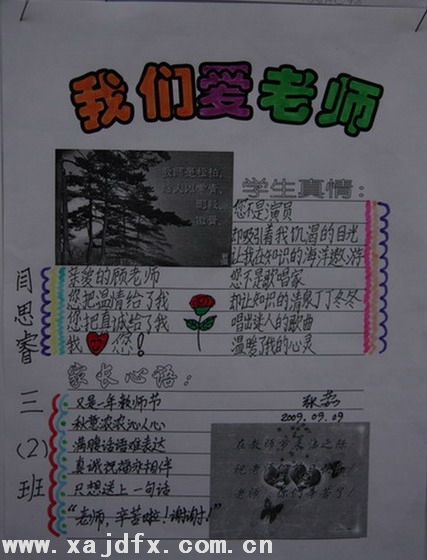 我们爱老师
教师是松柏，
学生真情：
您不是演员
却吸引着我饥渴的目光
让我在知识的海洋遨游
亲爱的顾老师
您不是歌唱家
您把温情给了我
却让知识的清泉丁丁冬冬
您把真诚给了我
唱出迷人的歌曲
我 您！
温暖了我的心灵
家长心语：
闫思睿
三
(2)
班
又是一年教师节
2009.09.09
秋意浓浓沁人心
满腹话语难表达
真诚祝福亦相伴
只想送上一句话
"老师，辛苦啦！谢谢！"
在教师节来临之际
老师 你们辛苦了！
www.xajdfx.com.cn
www.xajdfx.com.cn